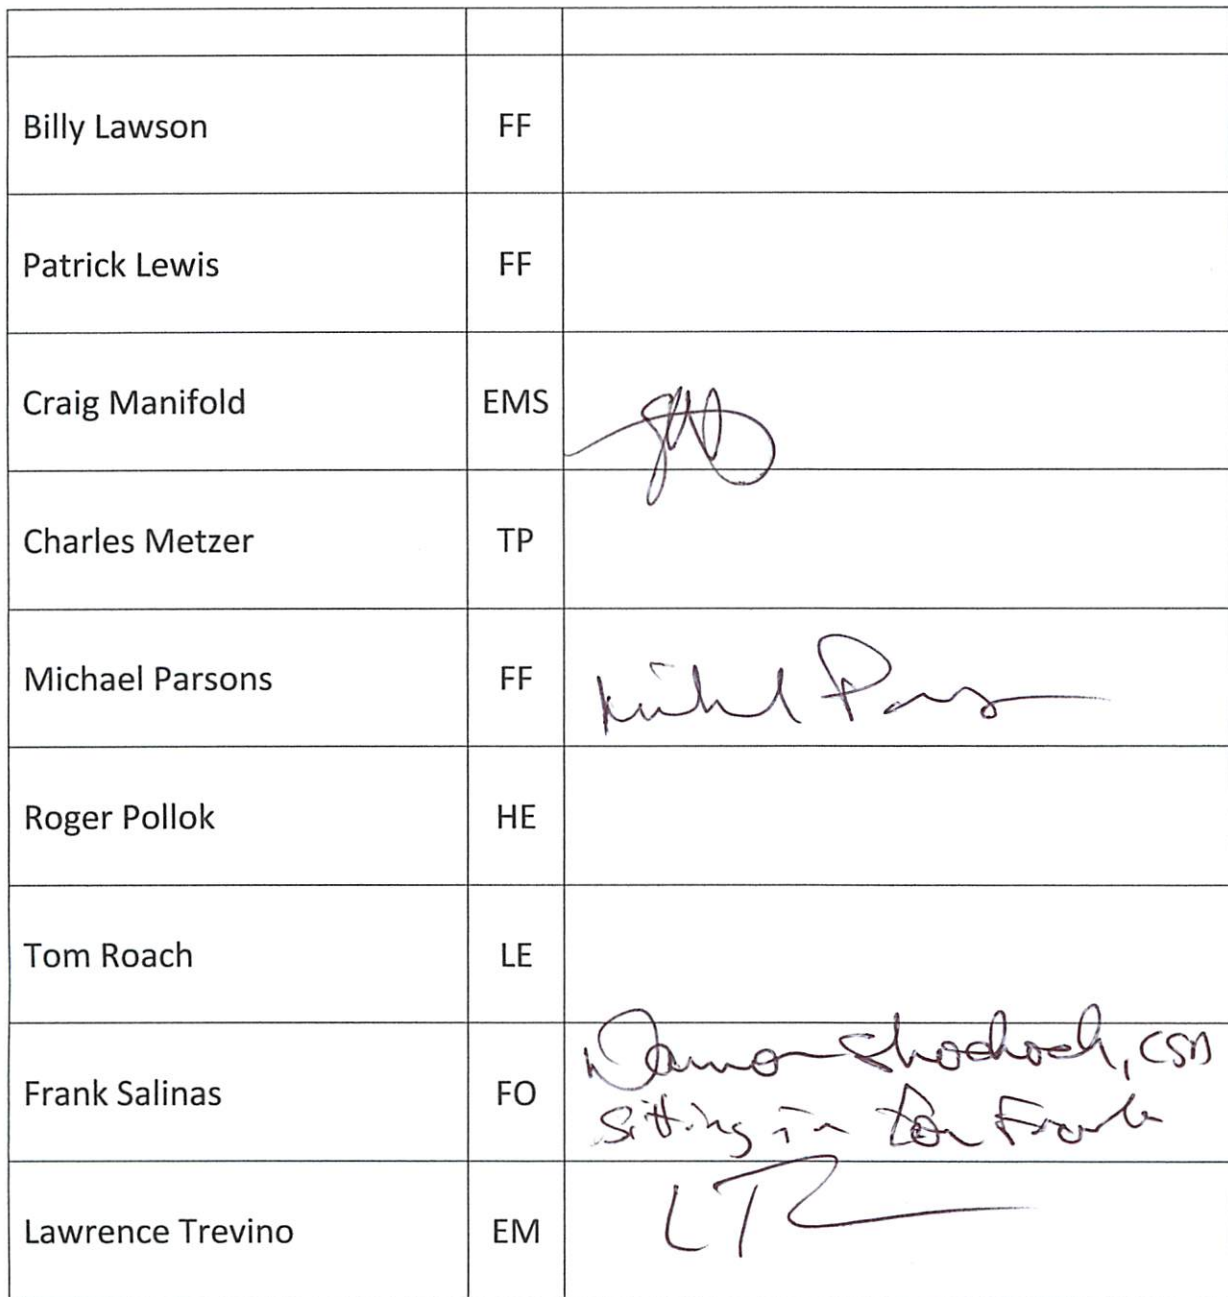 Billy Lawson FF
Patrick Lewis FF
Craig Manifold EMS
Charles Metzer TP
Michael Parsons FF
Roger Pollok HE
Tom Roach LE
Frank Salinas FO
CSA
Sitting in for Frank
Lawrence Trevino EM